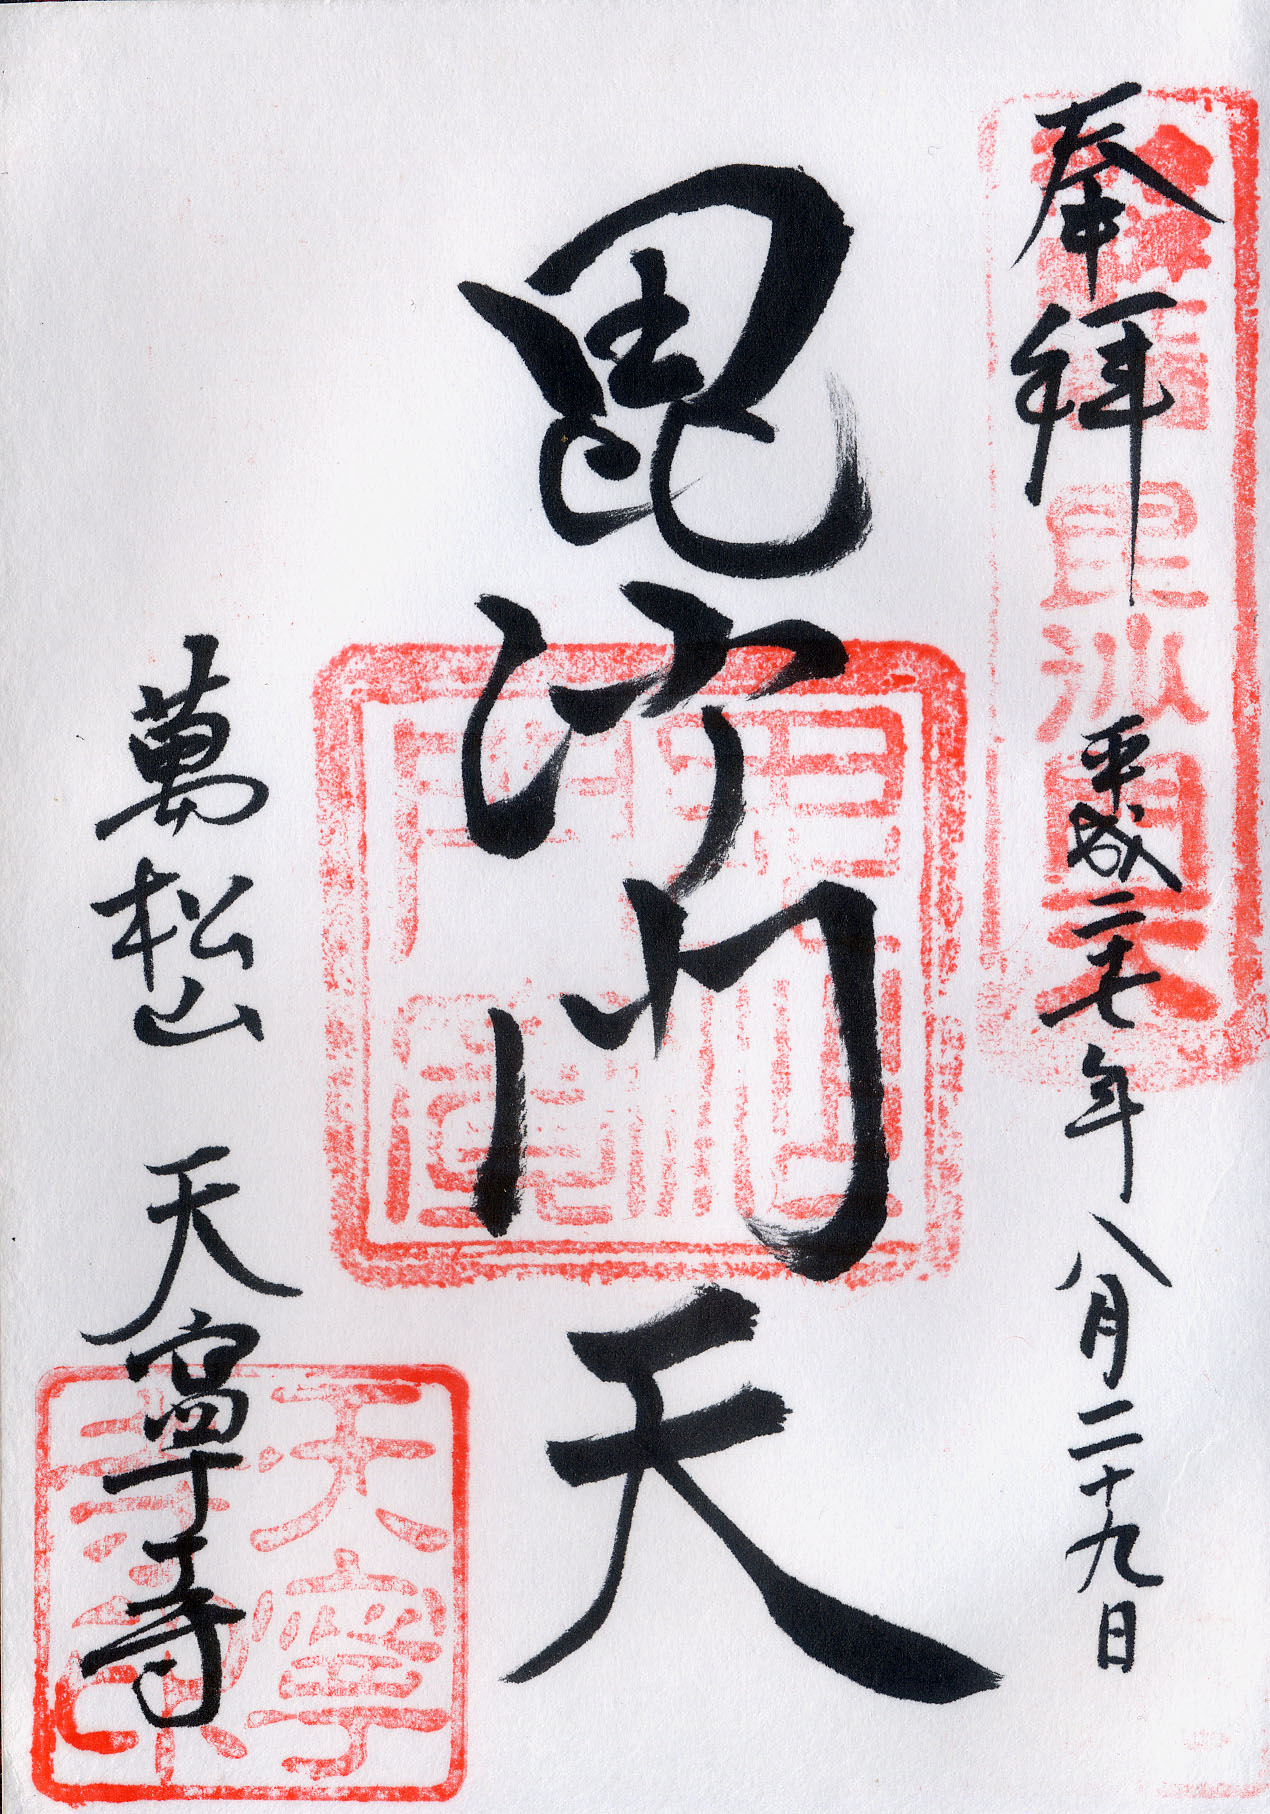 奉拝
平成二十七年八月二十九日
毘沙門天
萬松山 天寧寺
毘沙門堂
天寧寺印